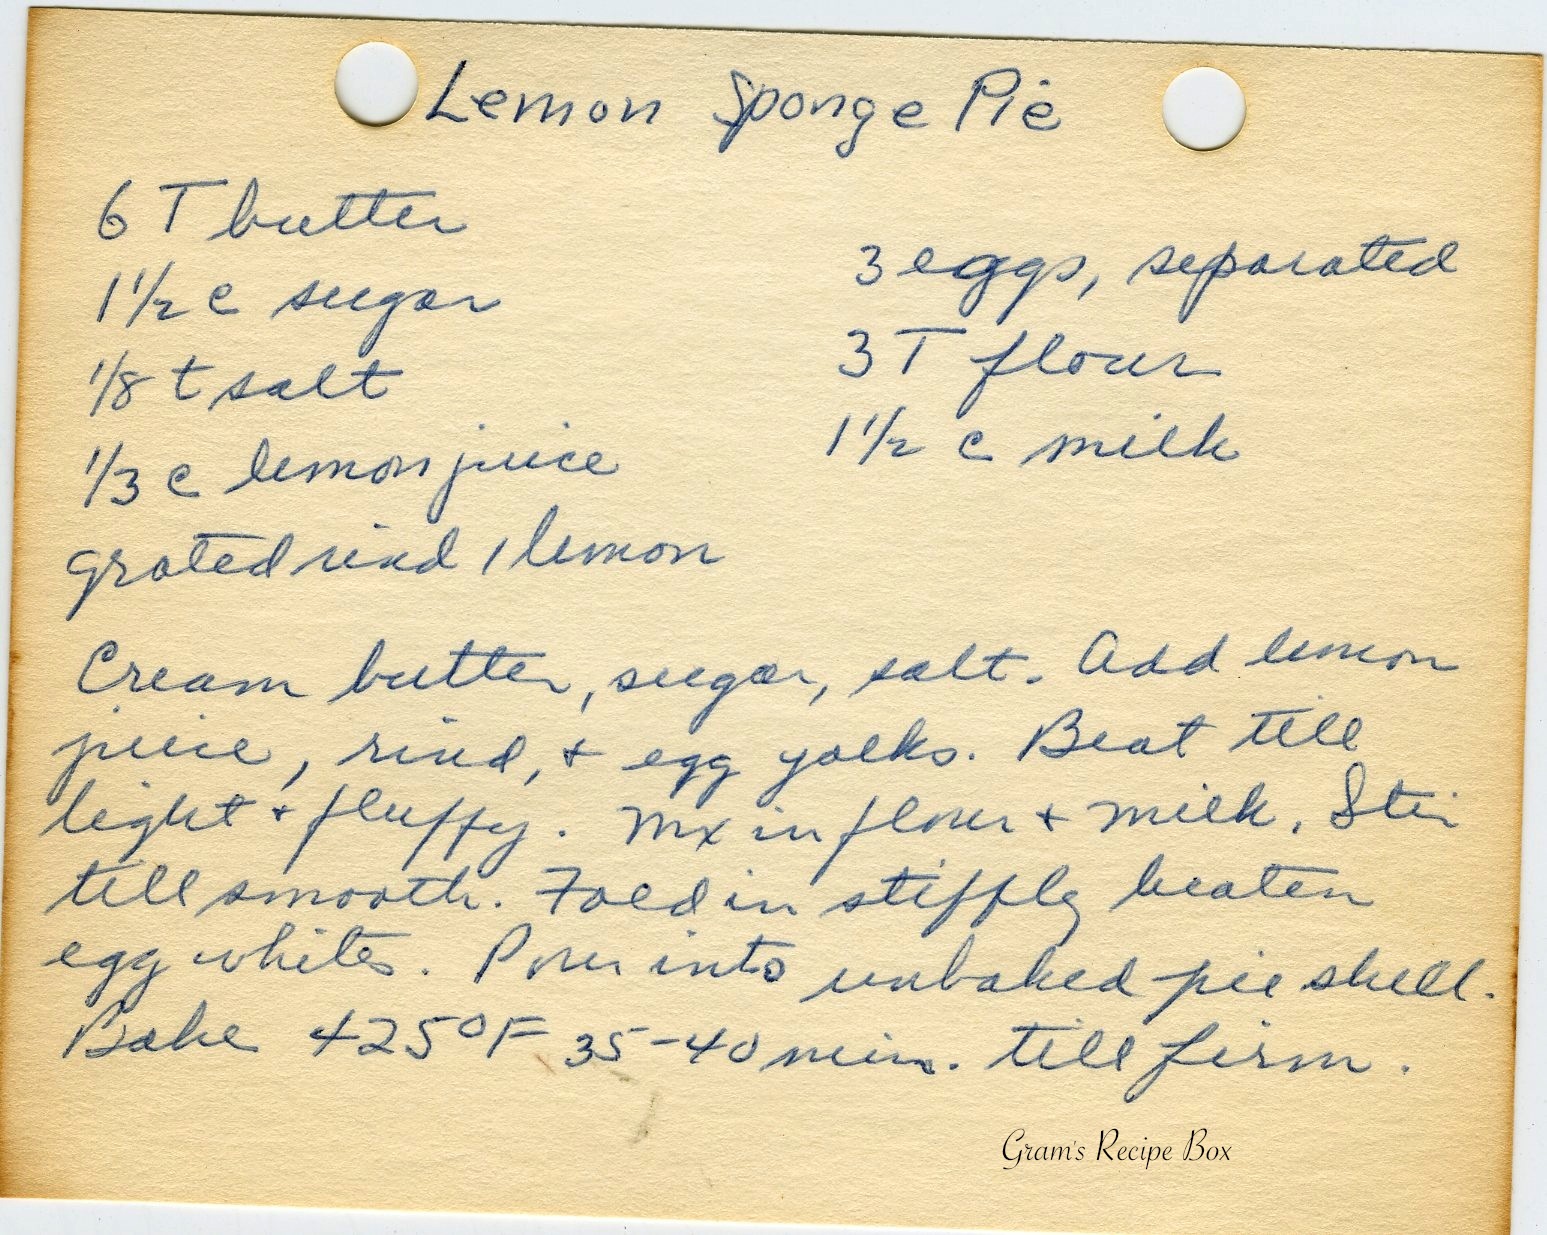 Lemon Sponge Pie
6 T butter
1 1/2 c sugar
1/8 t salt
1/3 c lemon juice
grated rind 1 lemon
3 eggs, separated
3 T flour
1 1/2 c milk
Cream butter, sugar, salt. Add lemon
juice, rind, + egg yolks. Beat till
light + fluffy. Mix in flour + milk. Stir
till smooth. Fold in stiffly beaten
egg whites. Pour into unbaked pie shell.
Bake 425°F 35-40 min. till firm.
Gram's Recipe Box